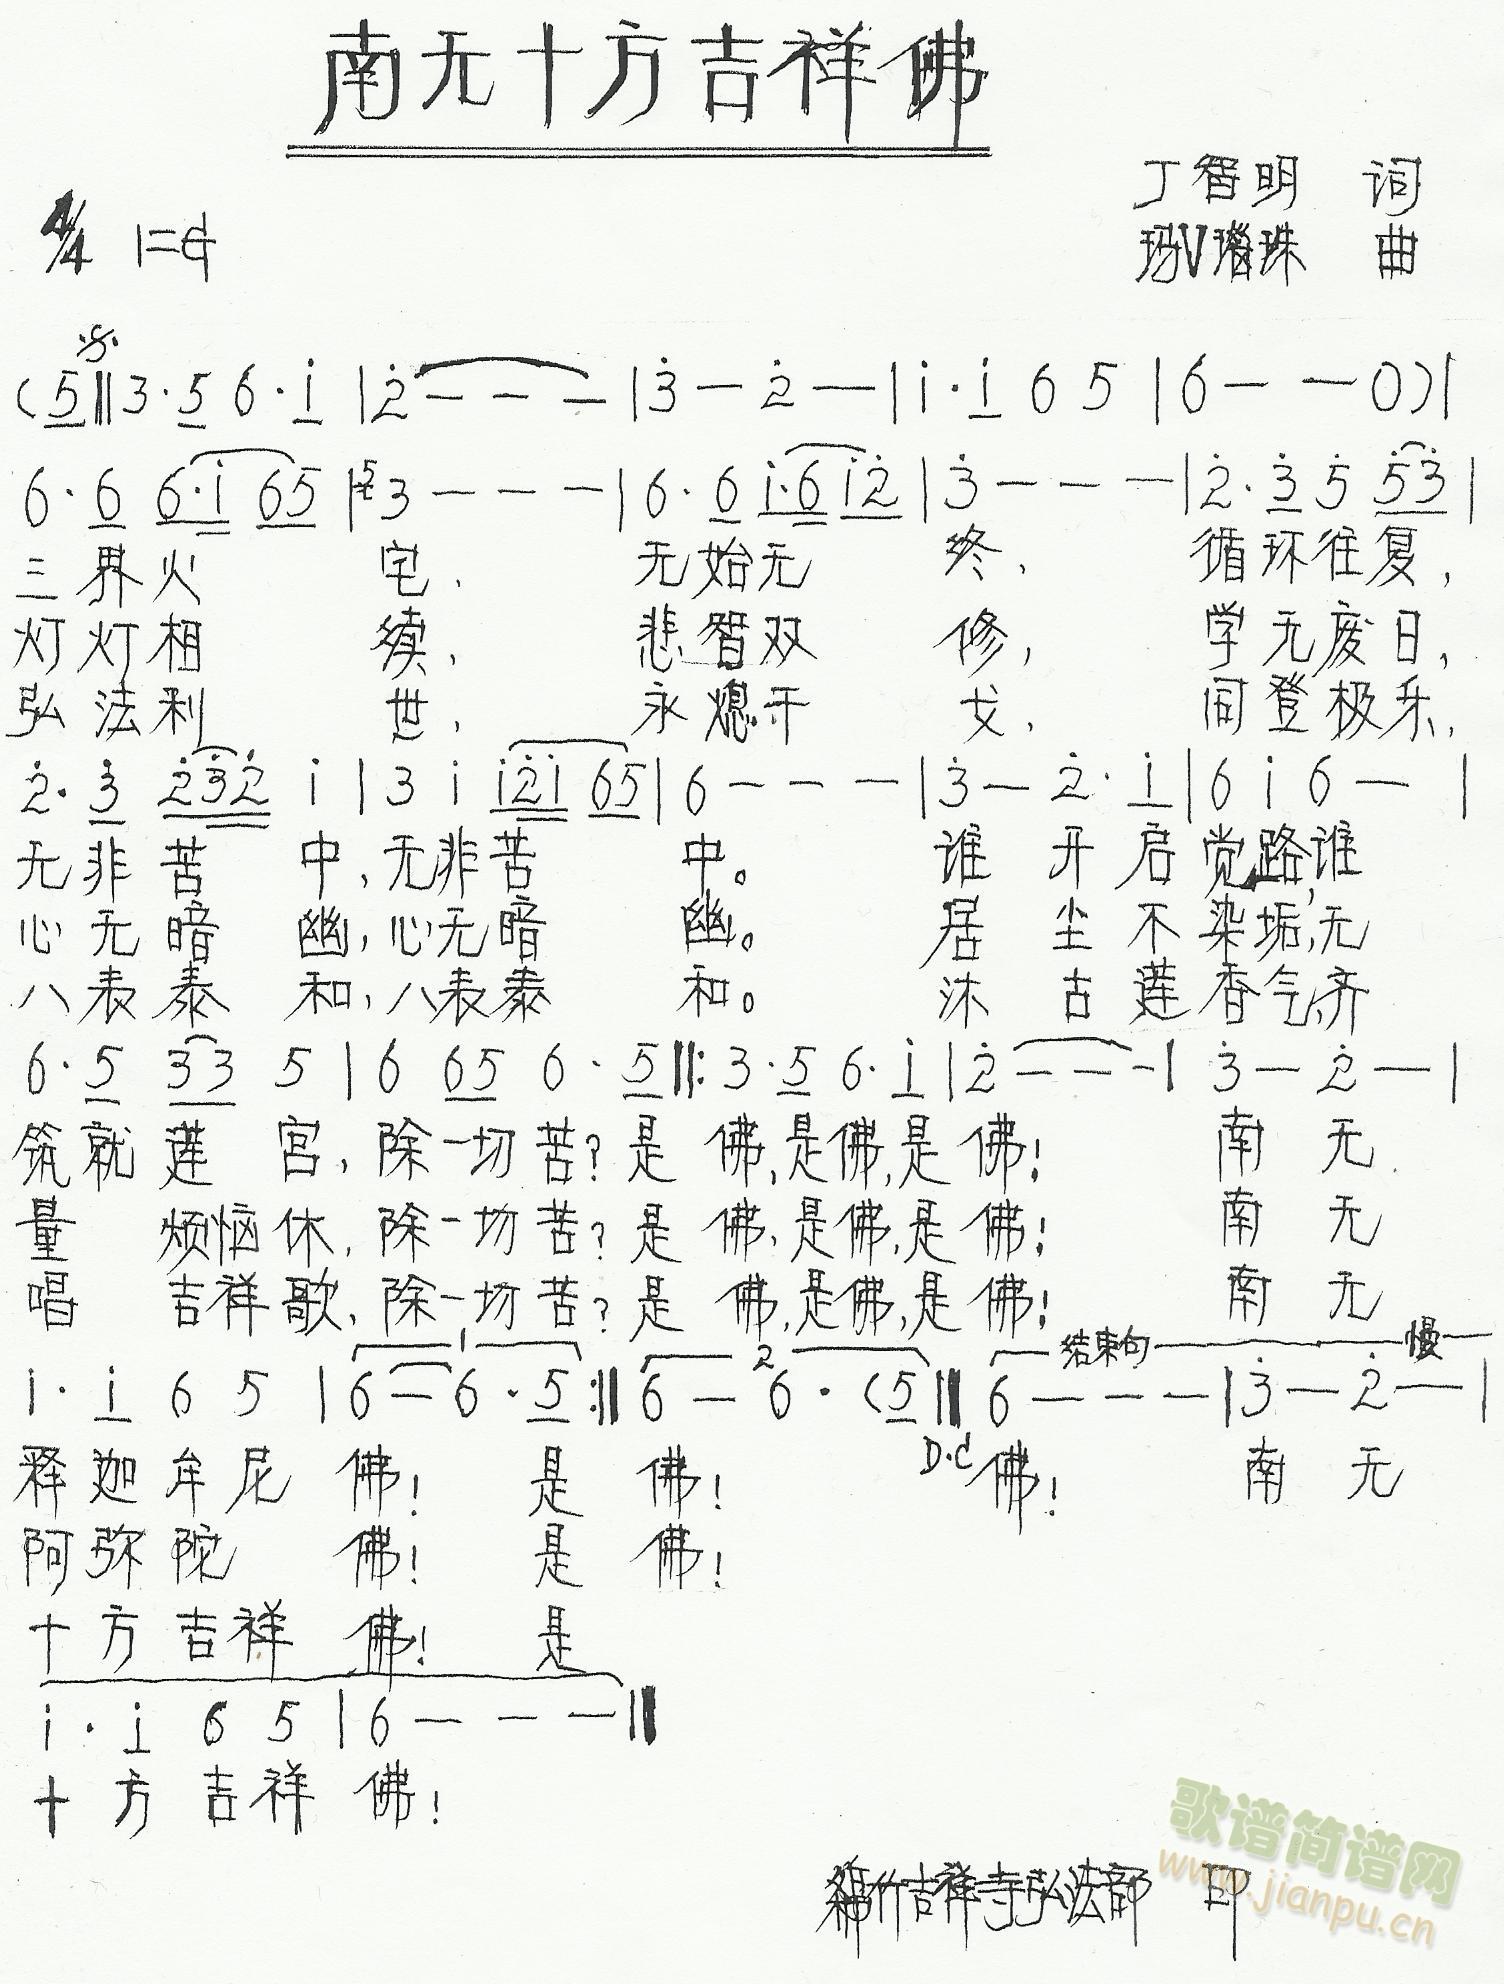 南无十方吉祥佛
丁智明 词
4/4 1=G
玛V瑙珠 曲
(5‖3·5 6·i |2̇ - - - |3̇ - 2̇ - |i·i 6 5 |6 - - 0)|
6·6 6·i 65 |3 - - - |6·6 i·6 i2̇ |3̇ - - - |2̇·3̇ 5̇ 5̇3̇ |
三界火 宅, 无始无 终, 循环往复,
灯灯相 续, 悲智双 修, 学无废日,
弘法利 世, 永熄干 戈, 同登极乐,
2̇·3̇ 2̇3̇2̇ i |3 i i2̇i 65 |6 - - - |3̇ - 2̇·i |6 i 6 - |
无非苦 中,无非苦 中。 谁 开启觉路,谁
心无暗 幽,心无暗 幽。 居 尘不染垢,无
八表泰 和,八表泰 和。 沐 古莲香气,齐
6·5 33 5 |6 65 6·5‖:3·5 6·i |2̇ - - - | 3̇ - 2̇ - |
筑就莲 宫,除一切苦?是 佛,是佛,是佛! 南 无
量 烦恼休,除一切苦?是 佛,是佛,是佛! 南 无
唱 吉祥歌,除一切苦?是 佛,是佛,是佛! 南 无
1 2 结束句 慢
i·i 6 5 |6 - 6·5:‖6 - 6·(5‖6 - - - |3̇ - 2̇ - |
D.C
释迦牟尼 佛! 是 佛! 佛! 南 无
阿弥陀 佛! 是 佛!
十方吉祥 佛! 是
i·i 6 5 |6 - - - ‖
十方吉祥 佛!
歌谱简谱网
www.jianpu.cn
竹吉祥寺弘法部 印